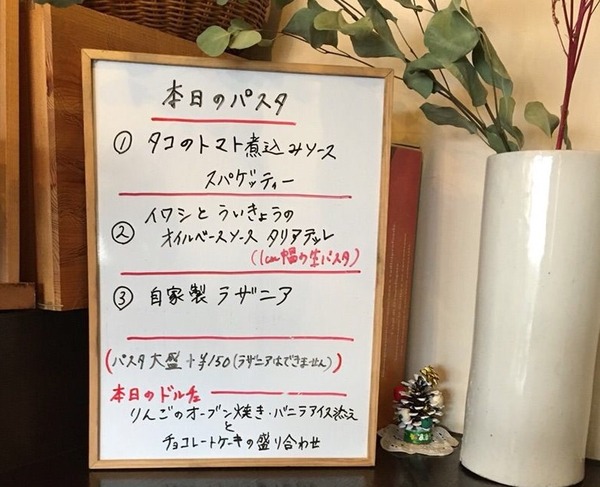 本日のパスタ
① タコのトマト煮込みソース
スパゲッティー
② イワシとういきょうの
オイルベースソース タリアテッレ
(1cm幅の生パスタ)
③ 自家製 ラザニア
(パスタ大盛 +¥150 (ラザニアはできません))
本日のドルチェ
りんごのオーブン焼き・バニラアイス添え
と
チョコレートケーキの盛り合わせ